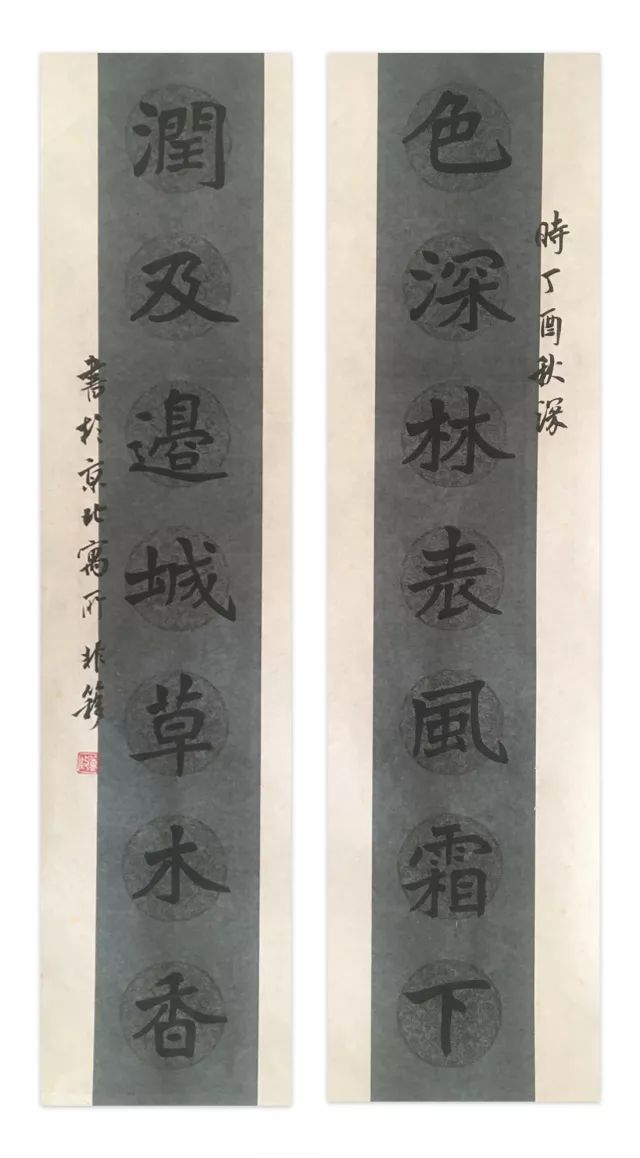 時丁酉秋深
色深林表風霜下
潤及邊城草木香
書於京北寓所